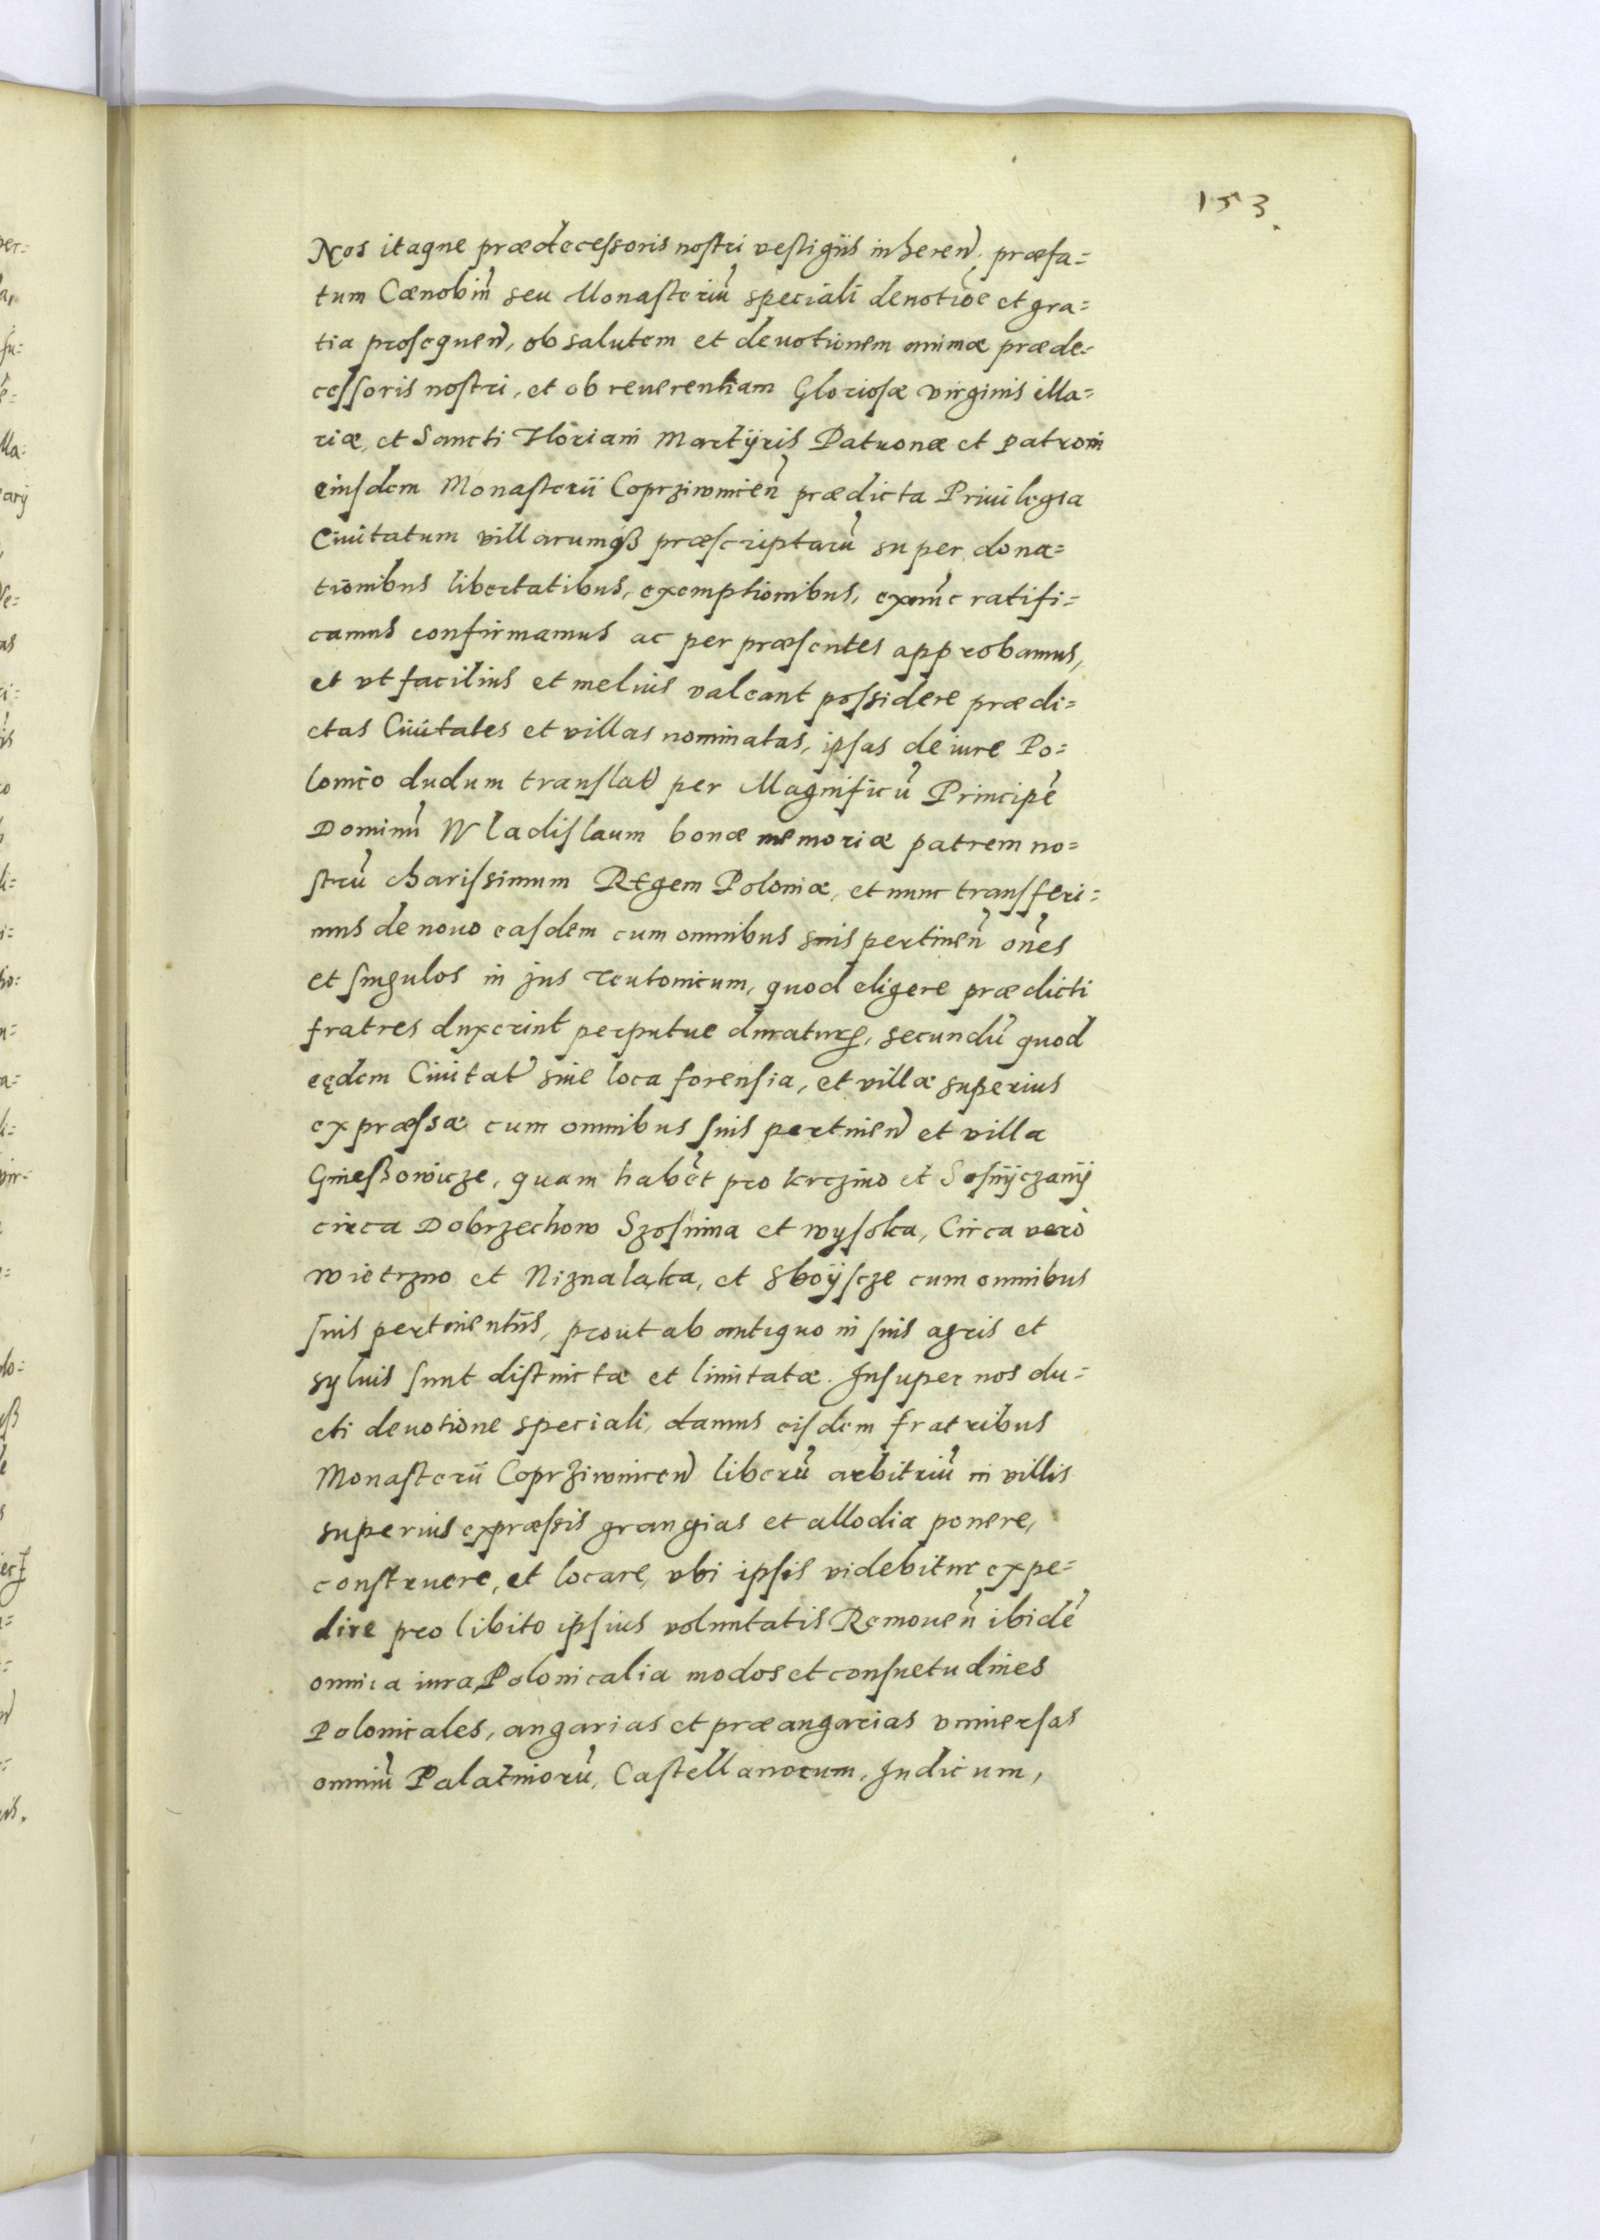 153.
Nos itaque prædecessoris nostri vestigiis inheren̄. præfa=
tum Cœnobiū seu Monasteriū speciali deuotiōe et gra=
tia prosequen̄, ob salutem et deuotionem animæ præde=
cessoris nostri, et ob reuerentiam Gloriosæ virginis Ma=
riæ, et Sancti Floriani Martyris Patronæ et patroni
eiusdem Monasterii Coprziwnicen̄ prædicta Priuilegia
Ciuitatum villarumqȝ præscriptarū super dona=
tionibus libertatibus, exemptionibus, exnūc ratifi=
camus confirmamus ac per præsentes approbamus,
et vt facilius et melius valeant possidere prædi=
ctas Ciuitates et villas nominatas, ipsas de iure Po=
lonico dudum translat̄ per Magnificū Principē
Dominū Wladislaum bonæ memoriæ patrem no=
strū charissimum Regem Poloniæ, et nunc transferi=
mus de nouo easdem cum omnibus suis pertinen̄ on̄es
et singulos in jus Teutonicum, quod eligere prædicti
fratres duxerint perputue duraturꝭ, secundū quod
eędem Ciuitat̄ siue loca forensia, et villæ superius
expræssæ cum omnibus suis pertinen̄ et villa
Gnießowicze, quam habēt pro krczino et Sosnÿczanÿ
circa Dobrzechow Szosnina et wysoka, Circa verò
wietrzno et Niznalaka, et Sboÿscze cum omnibus
suis pertinentiis, prout ab antiquo in suis agris et
syluis sunt distinctæ et limitatæ. Insuper nos du=
cti deuotione speciali, damus eisdem fratribus
Monasterii Coprziwnicen̄ liberū arbitriū in villis
superius expræssis grangias et allodia ponere,
construere, et locare, vbi ipsis videbitur expe=
dire pro libito ipsius voluntatis Remouen̄ ibidē
omnia iura Polonicalia modos et consuetudines
Polonicales, angarias et præangarias vniuersas
omniū Palatinorū, Castellanorum, Iudicum,